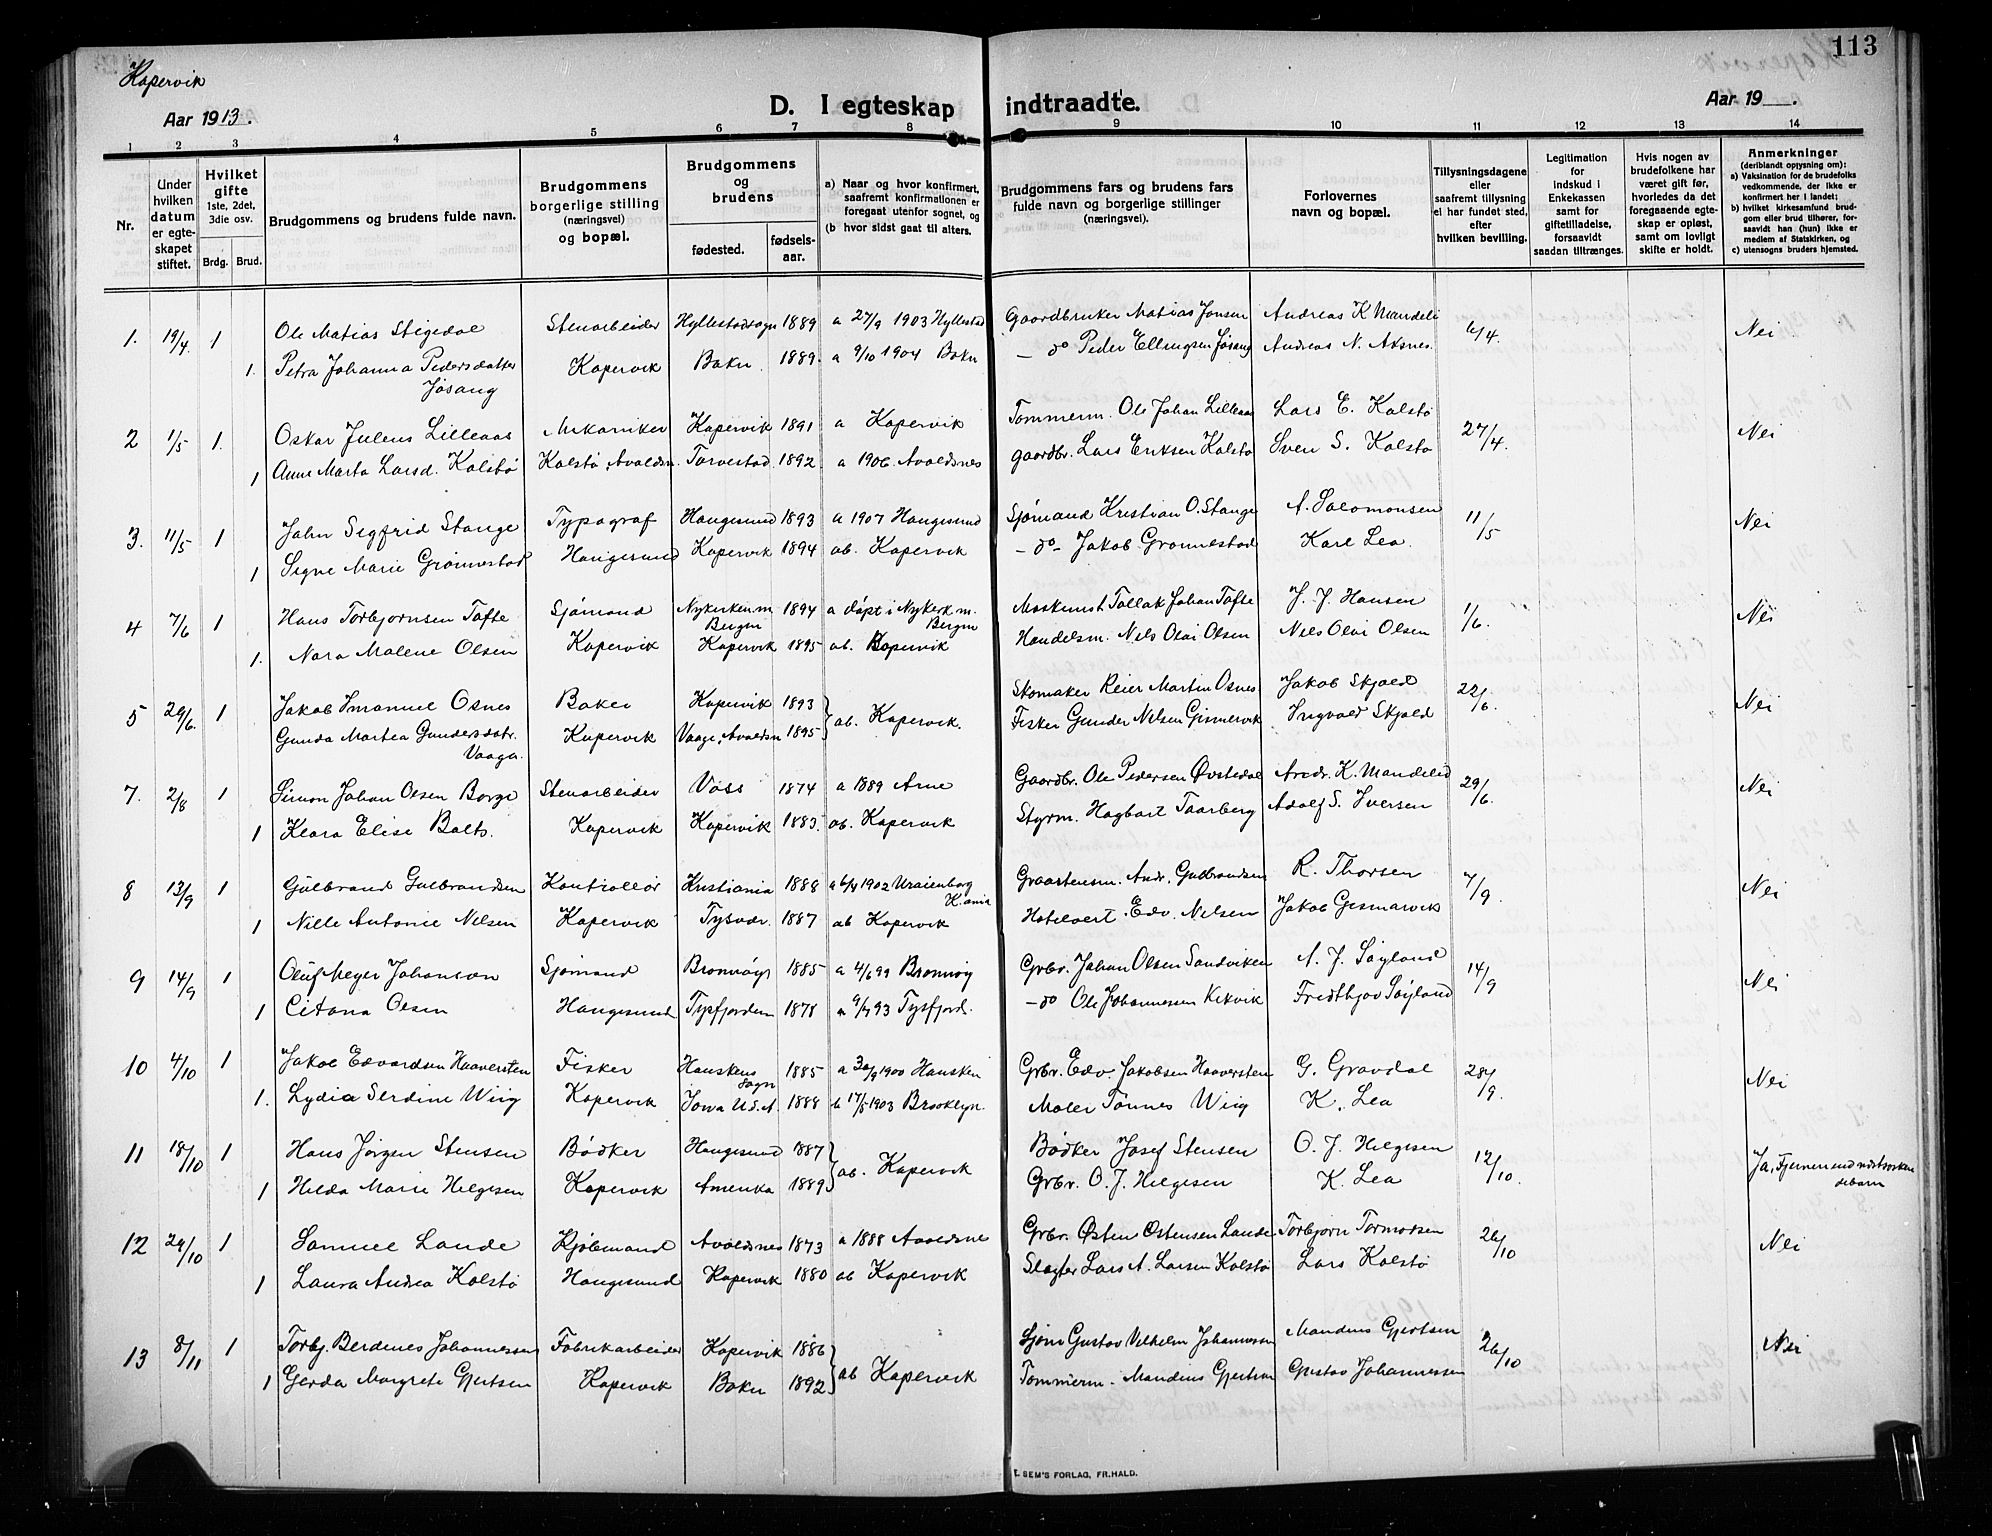 113
Kopervik
Aar 1913.
D. I egteskap indtraadte.
Aar 19 .
1 2 3 4 5 6 7 8 9 10 11 12 13 14
Nr.
Under hvilken datum er egteskapet stiftet.
Hvilket gifte 1ste, 2det, 3die osv.
Brdg. Brud.
Brudgommens og brudens fulde navn.
Brudgommens borgerlige stilling (næringsvei) og bopæl.
Brudgommens og brudens
fødested.
fødselsaar.
a) Naar og hvor konfirmert, saafremt konfirmationen er foregaat utenfor sognet, og
(b hvor sidst gaat til alters.
Brudgommens fars og brudens fars fulde navn og borgerlige stillinger (næringsvei).
Forlovernes navn og bopæl.
Tillysningsdagene eller saafremt tillysning ei har fundet sted, efter hvilken bevilling.
Legitimation for indskud i Enkekassen samt for giftetilladelse, forsaavidt saadan tiltrænges.
Hvis nogen av brudefolkene har været gift før, hvorledes da det foregaaende egteskap er opløst, samt om lovligt skifte er holdt.
Anmerkninger (deriblandt opjysning om):
a) Vaksination for de brudefolks vedkommende, der ikke er konfirmert her i landet;
b) hvilket kirkesamfund brudgom eller brud tilhører, forsaavidt han (hun) ikke er medlem af Statskirken, og
c) utensogns bruders hjemsted.
1. 19/4. 1 Ole Matias Stigedal Stenarbeider Hyllestadsogn 1889 a 27/9 1903 Hyllestad Gaardbruker Matias Jonsen Andreas K Mandeli 6/4. Nei
1. Petra Johanna Pedersdatter Jøsang Kopervik Bokn 1889. a 9/10 1904 Bokn - do Peder Ellingsen Jøsang Andreas N. Aksnes.
2 1/5 1. Oskar Julens Lilleaas Mekaniker Kopervik 1891 a Kopervik Tømmerm. Ole Johan Lilleaas Lars E. Kolstø 27/4. Nei
1 Anne Marta Larsd. Kolstø Kolstø, Avaldsn. Torvestad 1892 a 1906 Avaldsnes gaardbr. Lars Eriksen Kolstø Sven S. Kolstø
3. 11/5 1 John Sigfrid Stange Typograf Haugesund 1893 a 1907 Haugesund Sjømand Kristian O. Stange A. Salomonsen 11/5 Nei
1 Signe Marie Grønnestad Haugesund Kopervik 1894 ab. Kopervik - do - Jakob Grønnestad Karl Lea.
4 7/6 1 Hans Torbjørnsen Tofte Sjømand Nykirken m. Bergen 1894 a døpt i Nykerk m. Bergen Maskinist Tollak Johan Tofte J. J. Hansen 1/6. Nei
1. Nora Malene Olsen Kopervik Kopervik 1895 ab. Kopervik Handelsm. Nels Olai Olsen Nels Olai Olsen
5 29/6. 1 Jakob Imanuel Osnes Baker Kopervik 1893 } ab. Kopervik. Skomaker Reier Martin Osnes Jakob Skjold 22/6. Nei
Gunda Martea Gundersdatr. Vaaga. Kopervik Vaage, Avaldsn 1895 Fisker Gunder Nilsen Gismervik Ingvald Skjold
7. 2/8 1 Simon Johan Olsen Borge Stenarbeider Voss 1874 a 1889 Arne Gaardbr. Ole Pedersen Øvstedal Andr. K. Mandelid 29/6. Nei
1 Klara Elise Balts. Kopervik Kopervik 1883. ab. Kopervik Styrm. Hagbart Taarberg Adolf S. Iversen
8 13/9 1 Gulbrand Gulbrandsen Kontrollør Kristiania 1888 a 6/4 1902 Uraienborg K.ania Andr. Gulbrandsen R. Thorsen 7/9. Nei
1 Nille Antonie Nelsen Kopervik Tysvær. 1887 ab Kopervik Hotelvert. Edv. Nelsen Jakob Gismarvik
9 14/9 1 Oluf Meyer Johanson Sjømand Brønnøys 1885 a 4/6 99 Brønnøy Grbr. Johan Olsen Sandviken A. J. Søyland 14/9 Nei
1 Citana Olsen Haugesund Tysfjorden 1878 a 9/7 93 Tysfjord. - do Ole Johannessen Kikvik Fredthjov Søyland
10 4/10 1 Jakob Edvardsen Haaversten Fisker Hausken Sogn 1885 a 30/9 1900 Hausken Grbr. Edv. Jakobsen Haaversten G. Gravdal 28/9. Nei
1. Lydia Serdine Wiig Kopervik Iowa U.S.A 1888 b 17/5 1903 Brooklyn. Maler Tønnes Wiig K. Lea
11 18/10 1 Hans Jørgen Stensen Bødker Haugesund 1887 } ab. Kopervik Bødker Josef Stensen O. J. Helgesen 12/10. Ja,
1 Hilda Marie Helgesen Kopervik Amerika 1889 Grbr. O. J. Helgesen K. Lea
12 29/10 1 Samuel Lande Kjøbmand Avaldsnes 1873 a 1888 Avaldsne Grbr. Østen Ostensen Lande Torbjørn Tormodsen 26/10 Nei
1 Laura Andrea Kolstø Haugesund Kopervik 1880 ab Kopervik Slagter Lars A. Larsen Kolstø Lars Kolstø
13 8/11 1 Torbj. Berdenes Johannessen Fabrikarbeider Kopervik 1886 } ab Kopervik Sjøm Gustav Vilhelm Johannessen Mandius Gjertsen 26/10 Nei
1 Gerda Margrete Gjertsen Kopervik Bokn 1892 Tømmerm. Mandius Gjertsen Gustav Johannessen
E. SEM'S FORLAG, FR.HALD.